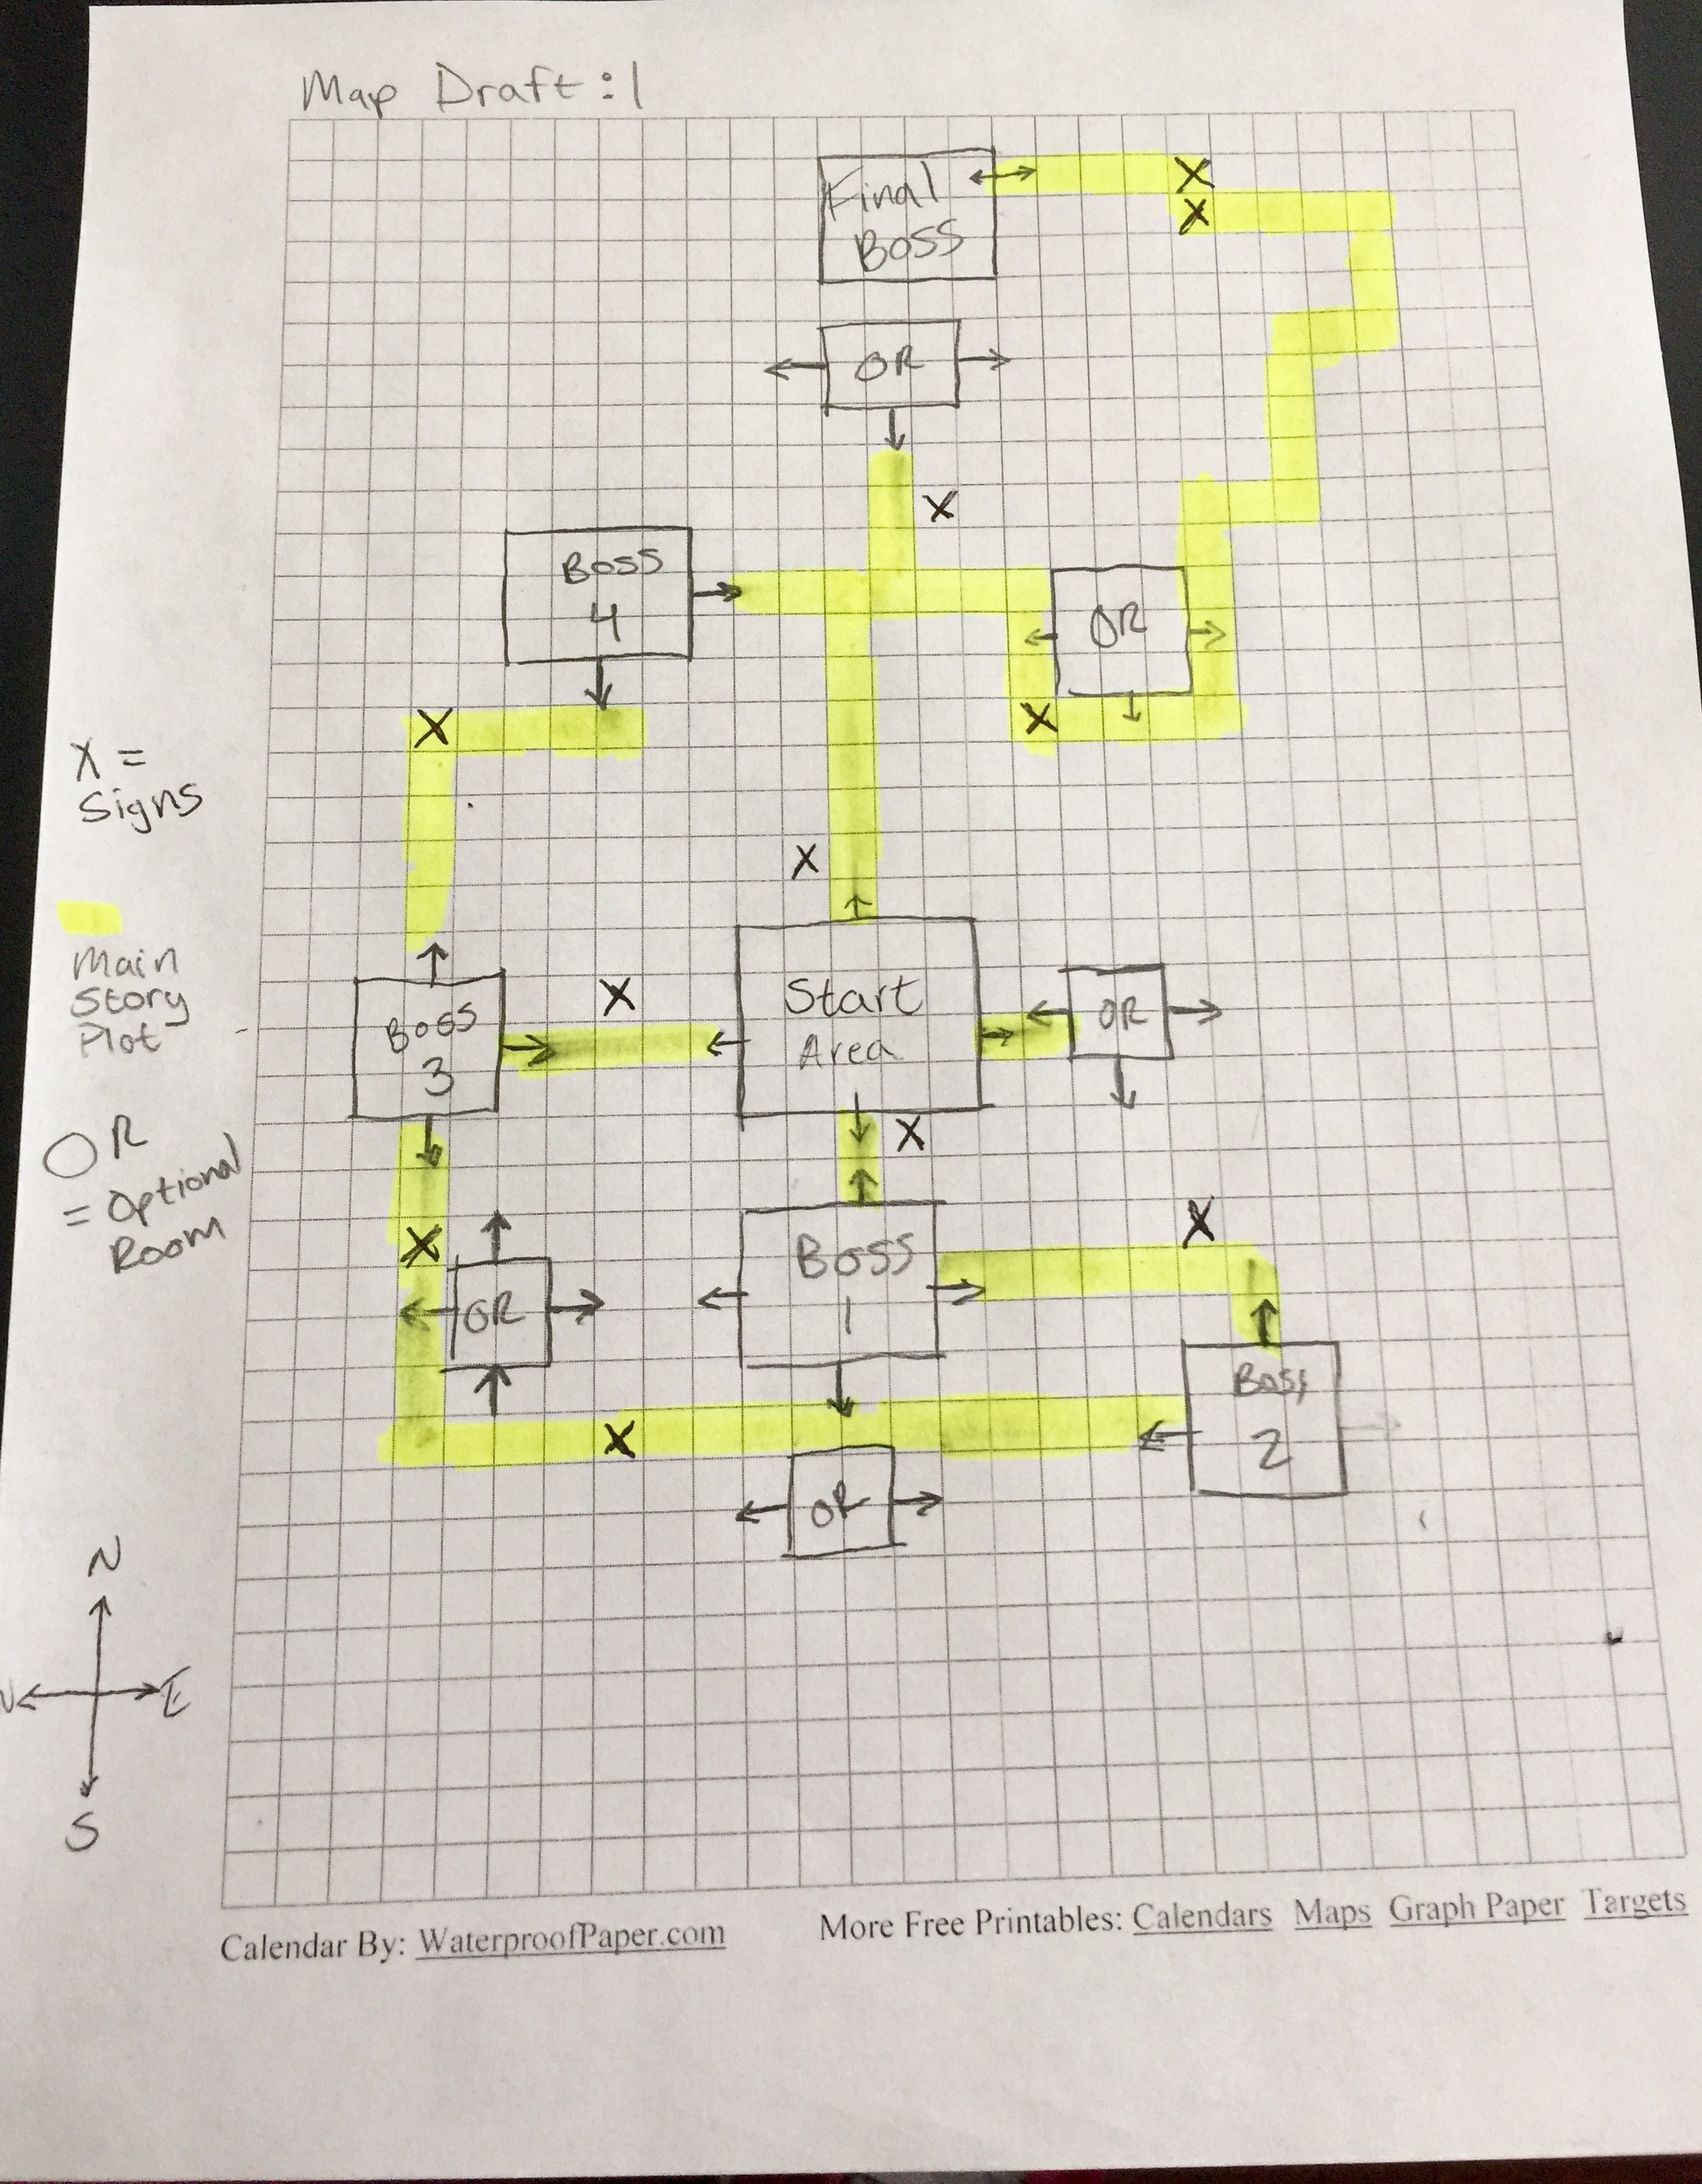 Map Draft:1
Final
Boss
X
X
OR
X
Boss
4
OR
X
X
X =
Signs
X
Main
Story
Plot
Boss
3
X
Start
Area
OR
X
OR
= Optional
Room
X
OR
Boss
1
X
Boss
2
X
OR
N
E
S
Calendar By: WaterproofPaper.com
More Free Printables: Calendars Maps Graph Paper Targets